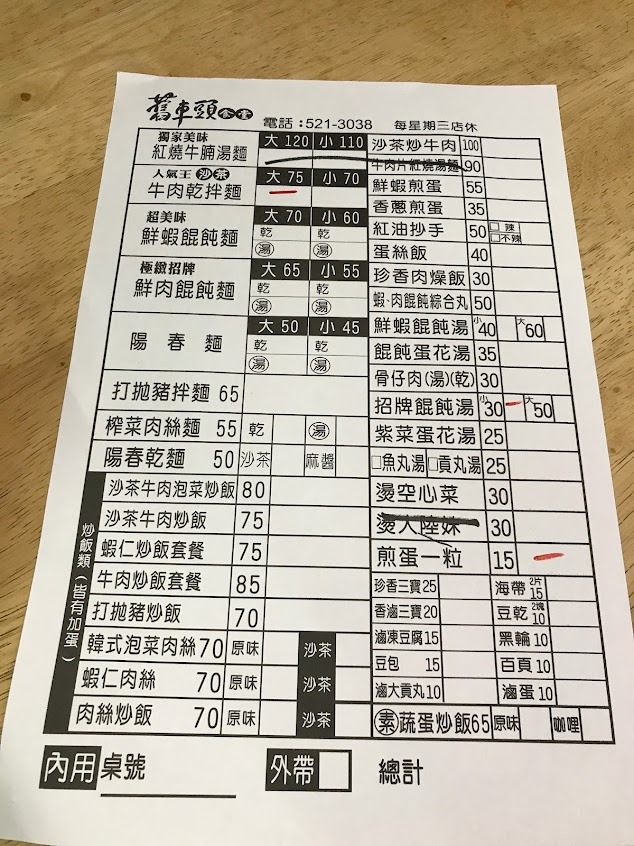 舊車頭食堂
電話:521-3038 每星期三店休
獨家美味
紅燒牛腩湯麵 大 120 小 110
人氣王 沙茶
牛肉乾拌麵 大 75 小 70
超美味
鮮蝦餛飩麵 大 70 小 60
乾 乾
湯 湯
極緻招牌
鮮肉餛飩麵 大 65 小 55
乾 乾
湯 湯
陽春麵 大 50 小 45
乾 乾
湯 湯
打拋豬拌麵 65
榨菜肉絲麵 55 乾 湯
陽春乾麵 50 沙茶 麻醬
炒飯類(皆有加蛋)
沙茶牛肉泡菜炒飯 80
沙茶牛肉炒飯 75
蝦仁炒飯套餐 75
牛肉炒飯套餐 85
打拋豬炒飯 70
韓式泡菜肉絲 70 原味 沙茶
蝦仁肉絲 70 原味 沙茶
肉絲炒飯 70 原味 沙茶
沙茶炒牛肉 100
牛肉片紅燒湯麵 90
鮮蝦煎蛋 55
香蔥煎蛋 35
紅油抄手 50 □辣 □不辣
蛋絲飯 40
珍香肉燥飯 30
蝦·肉餛飩綜合丸 50
鮮蝦餛飩湯 小40 大60
餛飩蛋花湯 35
骨仔肉(湯)(乾) 30
招牌餛飩湯 小30 大50
紫菜蛋花湯 25
□魚丸湯 □貢丸湯 25
燙空心菜 30
燙大陸妹 30
煎蛋一粒 15
珍香三寶 25 海帶 2片 15
香滷三寶 20 豆乾 2塊 10
滷凍豆腐 15 黑輪 10
豆包 15 百頁 10
滷大貢丸 10 滷蛋 10
素 蔬蛋炒飯 65 原味 咖哩
內用 桌號 外帶 總計